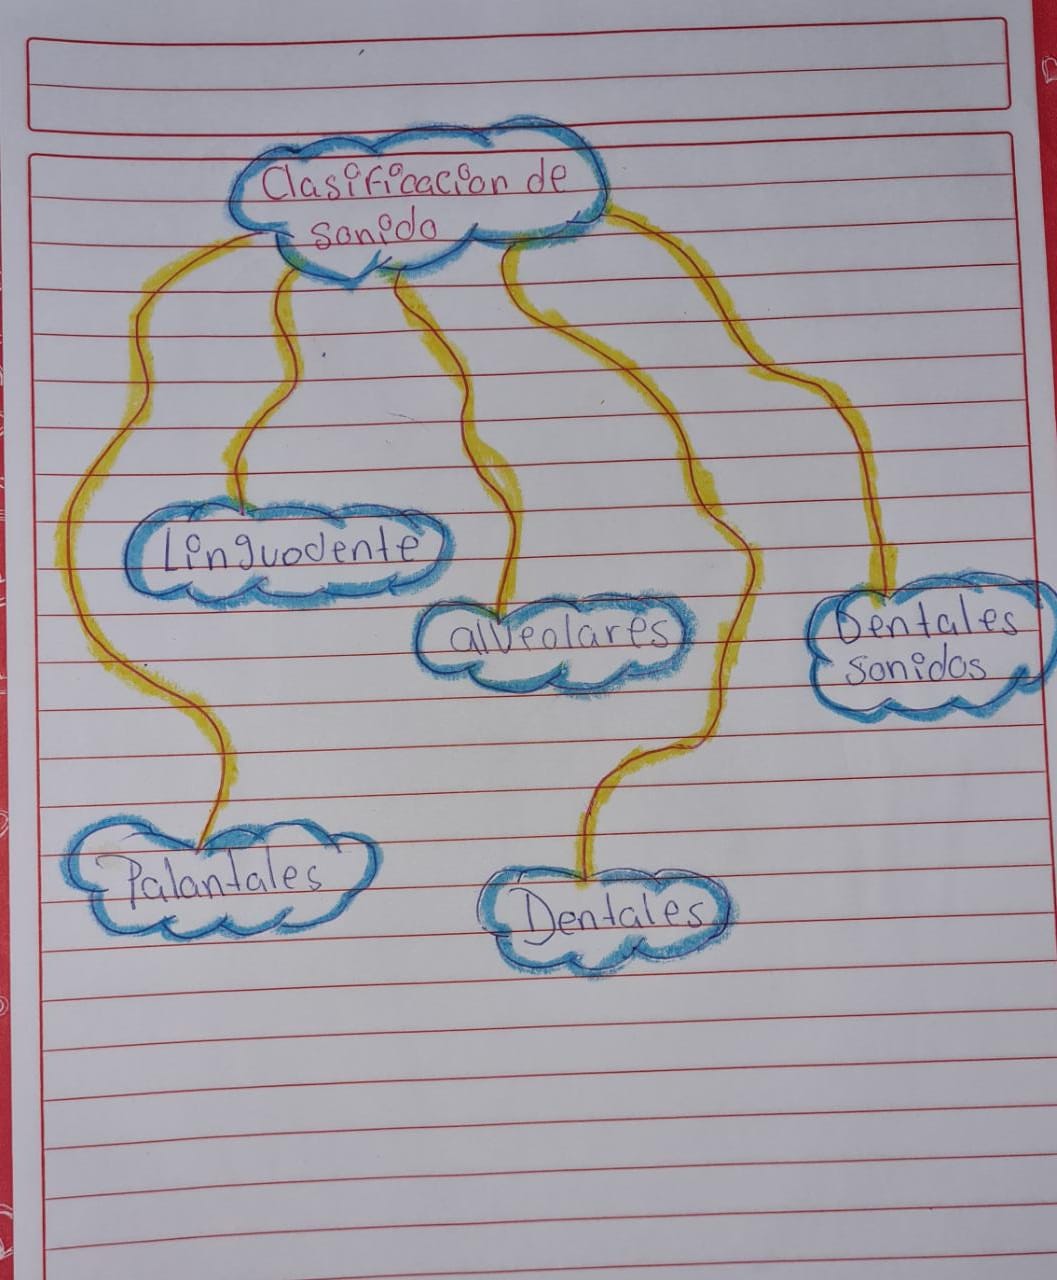 Clasificacion de
sonido
Linguodente
alveolares
Dentales
sonidos
Palantales
Dentales